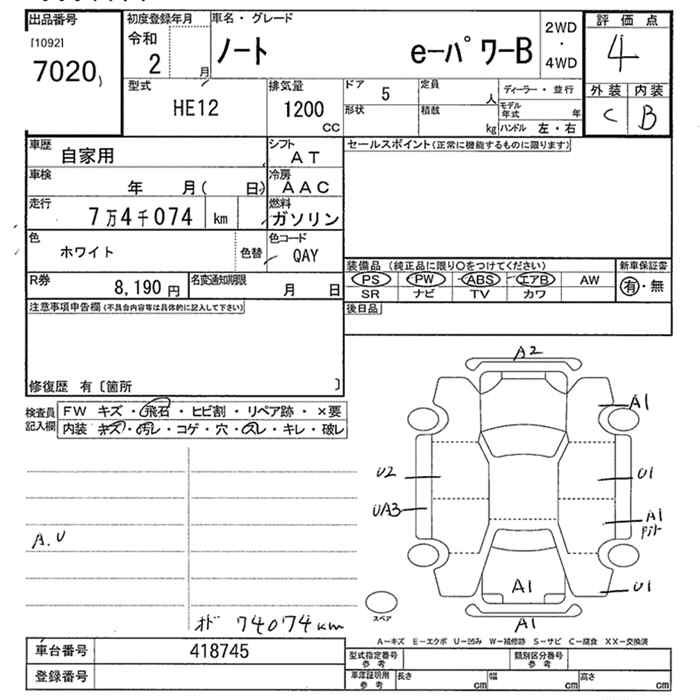 出品番号
[1092]
7020
初度登録年月
令和
2 月
車名・グレード
ノート eーパワーB
2WD
・
4WD
評価点
4
外装 内装
C B
型式
HE12
排気量
1200
CC
ドア 5
形状
定員
人
積載
kg
ディーラー・並行
モデル年式 年
ハンドル 左・右
車歴
自家用
シフト
AT
車検
年 月( 日)
冷房
AAC
走行
7万4千074 km
燃料
ガソリン
色
ホワイト
色替
色コード
QAY
R券
8,190 円
名変通知期限
月 日
セールスポイント(正常に機能するものに限ります)
装備品 (純正品に限り○をつけてください)
PS PW ABS エアB AW
SR ナビ TV カワ
新車保証書
有・無
後日品
注意事項申告欄(不具合内容等は具体的に記入して下さい)
修復歴 有〔箇所 〕
検査員
記入欄
FW キズ・飛石・ヒビ割・リペア跡・×要
内装 キズ・汚レ・コゲ・穴・スレ・キレ・破レ
A.U
オド 74074km
A2
A1
U2
U1
UA3
A1
U1
A1
A1
スペア
A-キズ E-エクボ U-凹み W-補修跡 S-サビ C-腐食 XX-交換済
車台番号 418745
登録番号
型式指定番号
参考
類別区分番号
参考
車庫証明用
参考
長さ cm
幅 cm
高さ cm